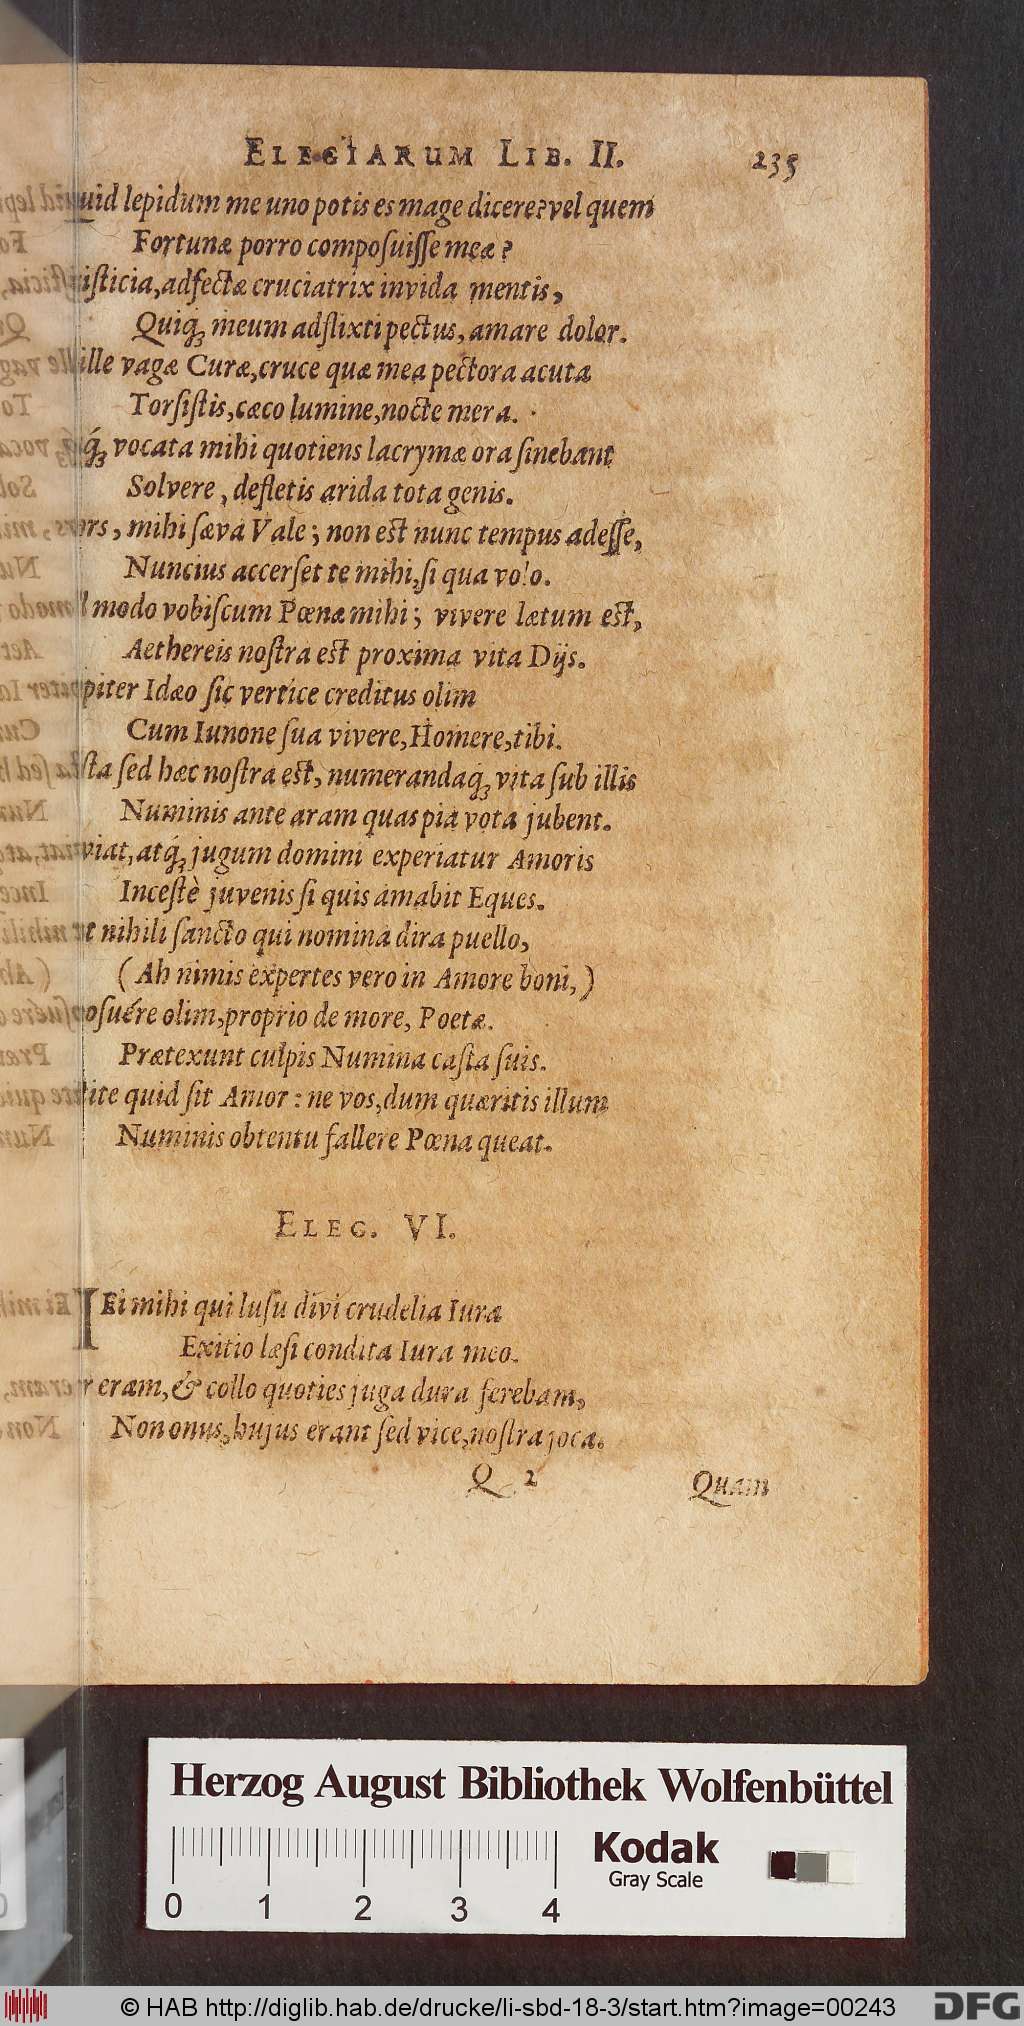 ELEGIARUM LIB. II. 235
quid lepidum me uno potis es mage dicere? vel quem
Fortunæ porro composuisse meæ?
isticia, adfectæ cruciatrix invida mentis,
Quiq́ꝫ meum adflixti pectus, amare dolor.
ille vagæ Curæ, cruce quæ mea pectora acuta
Torsistis, cæco lumine, nocte mera.
q́ꝫ vocata mihi quotiens lacrymæ ora sinebant
Solvere, defletis arida tota genis.
ors, mihi sæva Vale; non est nunc tempus adesse,
Nuncius accerset te mihi, si qua volo.
l modo vobiscum Pœnæ mihi; vivere lætum est,
Aethereis nostra est proxima vita Dijs.
piter Idæo sic vertice creditus olim
Cum Iunone sua vivere, Homere, tibi.
sta sed hæc nostra est, numerandaq́ꝫ vita sub illis
Numinis ante aram quas pia vota jubent.
viat, atq́ꝫ jugum domini experiatur Amoris
Incestè juvenis si quis amabit Eques.
nihili sancto qui nomina dira puello,
(Ah nimis expertes vero in Amore boni,)
osuére olim, proprio de more, Poetæ.
Prætexunt culpis Numina casta suis.
ite quid sit Amor: ne vos, dum quæritis illum
Numinis obtentu fallere Pœna queat.
ELEG. VI.
HEi mihi qui lusu divi crudelia Iura
Exitio læsi condita Iura meo.
r eram, & collo quoties juga dura ferebam,
Non onus, hujus erant sed vice, nostra joca.
Q 2 Quam
Herzog August Bibliothek Wolfenbüttel
Kodak
Gray Scale
0 1 2 3 4
© HAB http://diglib.hab.de/drucke/li-sbd-18-3/start.htm?image=00243 DFG